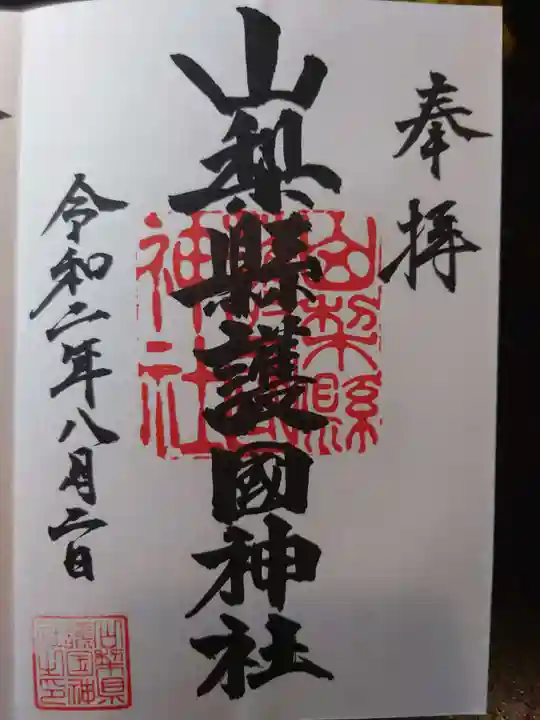 奉拝
山梨縣護國神社
山梨縣護國神社
令和二年八月二日
山梨県護国神社之印